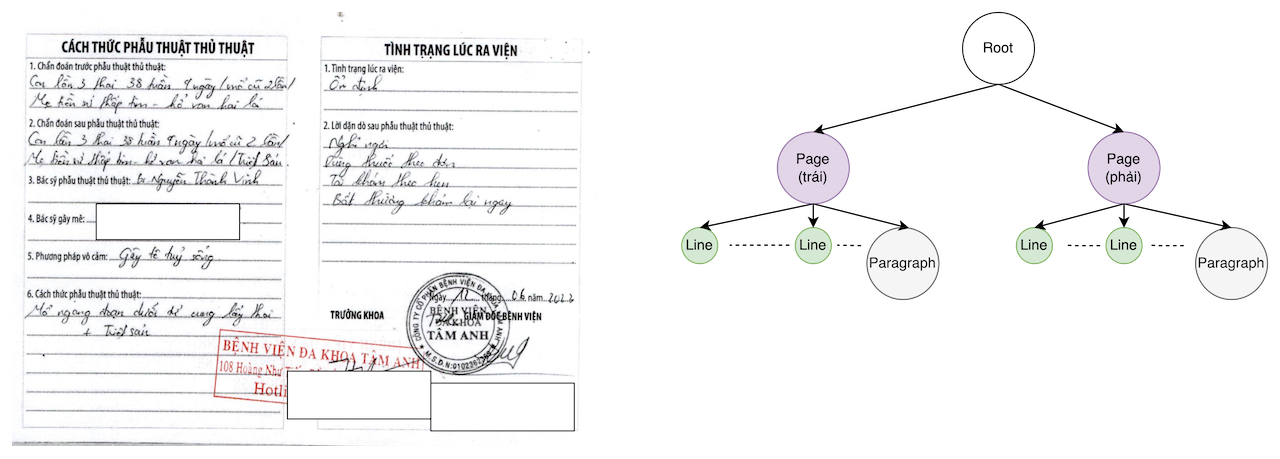 CÁCH THỨC PHẪU THUẬT THỦ THUẬT
1. Chẩn đoán trước phẫu thuật thủ thuật:
Con lần 3 thai 38 tuần 4 ngày / mổ cũ 2 lần /
Mẹ tiền sử thấp tim - hở van hai lá
2. Chẩn đoán sau phẫu thuật thủ thuật:
Con lần 3 thai 38 tuần 4 ngày / mổ cũ 2 lần /
Mẹ tiền sử thấp tim - hở van hai lá / Triệt sản
3. Bác sỹ phẫu thuật thủ thuật: Bs. Nguyễn Thành Vinh
4. Bác sỹ gây mê:
5. Phương pháp vô cảm: Gây tê tuỷ sống
6. Cách thức phẫu thuật thủ thuật:
Mổ ngang đoạn dưới tử cung lấy thai
+ Triệt sản
TÌNH TRẠNG LÚC RA VIỆN
1. Tình trạng lúc ra viện:
Ổn định
2. Lời dặn dò sau phẫu thuật thủ thuật:
Nghỉ ngơi
Dùng thuốc theo đơn
Tái khám theo hẹn
Bất thường khám lại ngay
Ngày 12 tháng 06 năm 2022
TRƯỞNG KHOA
GIÁM ĐỐC BỆNH VIỆN
CÔNG TY CỔ PHẦN BỆNH VIỆN ĐA KHOA TÂM ANH
BỆNH VIỆN
ĐA KHOA
TÂM ANH
M.S.D.N:
BỆNH VIỆN ĐA KHOA TÂM ANH
108 Hoàng Như
Hotli
Root
Page
(trái)
Page
(phải)
Line
Line
Paragraph
Line
Line
Paragraph